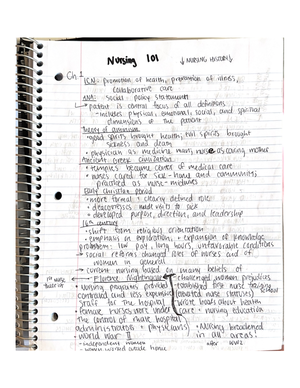 Nursing 101
↓ NURSING HISTORY ↓
Ch 1
ICN: promotion of health, prevention of illness,
collaborative care
ANA: Social policy statement
patient is central focus of all definitions
- includes physical, emotional, social, and spiritual
dimensions of the patient
Theory of animism
• good spirits brought health; evil spirits brought
sickness and death
• physician as medicine man; nurse as caring mother
Ancient Greek civilization
• temples became center of medical care
• nurses cared for sick - home and community;
practiced as nurse-midwives
Early Christian period
• more formal + clearly defined role
• deaconesses made visits to sick
• developed purpose, direction, and leadership
16th century
• shift from religious orientation
• emphasis on exploration, + expansion of knowledge
problems: low pay, long hours, unfavorable conditions
• social reforms changed roles of nurses and of
women in general
→ current nursing based on many beliefs of
Florence Nightingale
challenged women prejudices
Nursing programs provided
established first nurse training
controlled and less expensive
staff for the hospital
wrote books about health
female nurses were under
care + nursing education
the control of male hospital
administrators + physicians)
• Nursing broadened
• World War II
in all areas!
after WW2